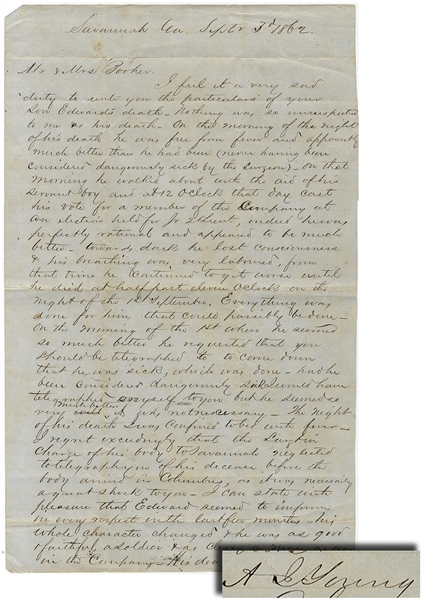 Savannah Ga. Septr 3d 1862.
Mr & Mrs Booker.
I feel it a very sad
duty to write you the particulars of your
Son Edward's death. Nothing was so unexpected
to me as his death. On the morning of the night
of his death he was free from fever and apparently
much better than he had been (never having been
considered dangerously sick by the Surgeon). On that
morning he walked about with the aid of his
servant boy and at 12 O'Clock that day cast
his vote for a member of the Company at
an election held for Jr 2 Lieut, indeed he was
perfectly rational and appeared to be much
better - towards dark he lost consciousness
& his breathing was very laboured, from
that time he continued to get worse until
he died at half past eleven O'Clock on the
night of the 1st September, Everything was
done for him that could possibly be done -
On the morning of the 1st when he seemed
so much better he requested that you
should be telegraphed to to come down
that he was sick, which was done - had he
been considered dangerously sick I would have
telegraphed myself to you but he seemed so
very much better it was not necessary - The night
of his death I was confined to bed with fever -
I regret exceedingly that the
charge of his body to Savannah neglected
to telegraph you of his decease before the
body arrived in Columbus, as it was necessarily
a great shock to you - I can state with
pleasure that Edward seemed to improve
in every respect in the last few months his
whole character changed & he was as good
& faithful a soldier & as
in the Company - His
A J Young